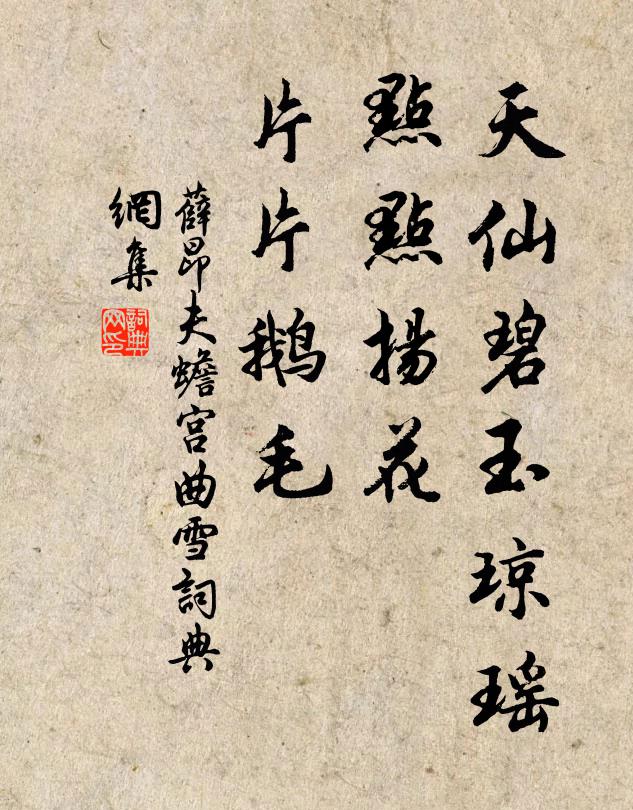 天仙碧玉琼瑶
點點揚花
片片鹅毛
薛昂夫蟾宫曲雪詞典
網集
詞典
网印